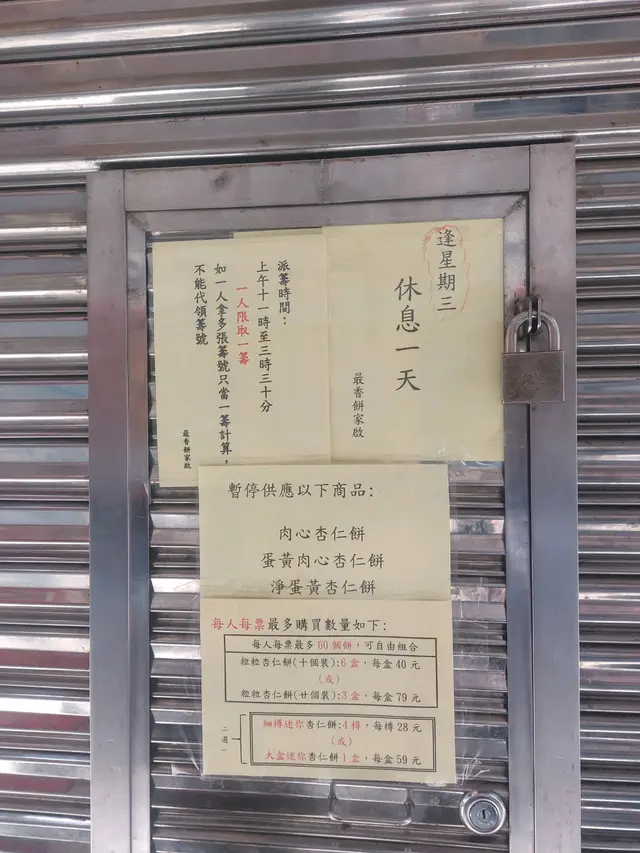 逢星期三
休息一天
最香餅家啟
派籌時間：
上午十一時至三時三十分
一人限取一籌
如一人拿多張籌號只當一籌計算，
不能代領籌號
最香餅家啟
暫停供應以下商品：
肉心杏仁餅
蛋黃肉心杏仁餅
淨蛋黃杏仁餅
每人每票最多購買數量如下：
每人每票最多60個餅，可自由組合
粒粒杏仁餅(十個裝):6盒，每盒40元
(或)
粒粒杏仁餅(廿個裝):3盒，每盒79元
二選一
細樽迷你杏仁餅:4樽，每樽28元
(或)
大盒迷你杏仁餅1盒，每盒59元